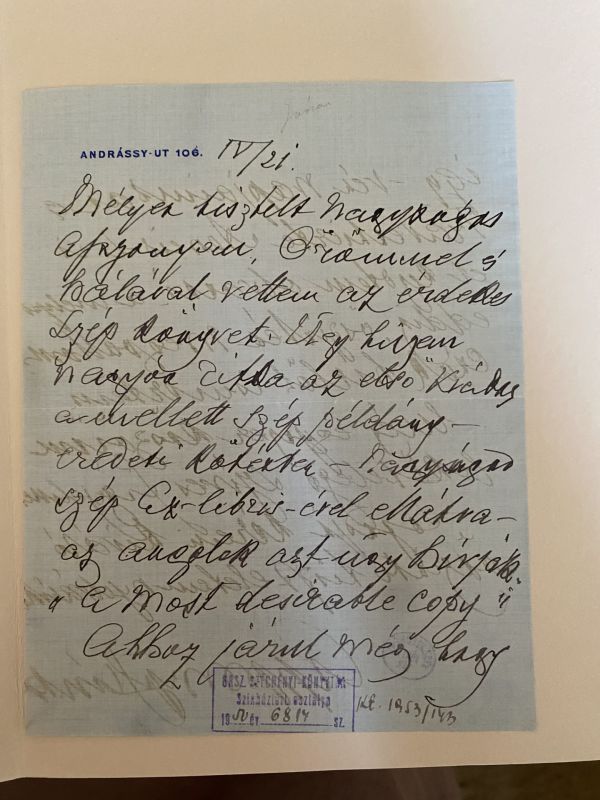 ANDRÁSSY-UT 106. IV/21.
Mélyen tisztelt Nagyságos
Asszonyom, Örömmel és
hálával vettem az érdekes
szép könyvet. Úgy hiszem
nagyon ritka az első kiadás
a mellett szép példány –
eredeti kötésben – Nagyságod
szép Ex-libris-ével ellátva –
az angolok azt úgy hívják:
„a most desirable copy"
Ahhoz járul még hogy
ORSZ. SZÉCHÉNYI-KÖNYVTÁR
Színháztört. osztálya
1950 év 6814 sz.
1953/143